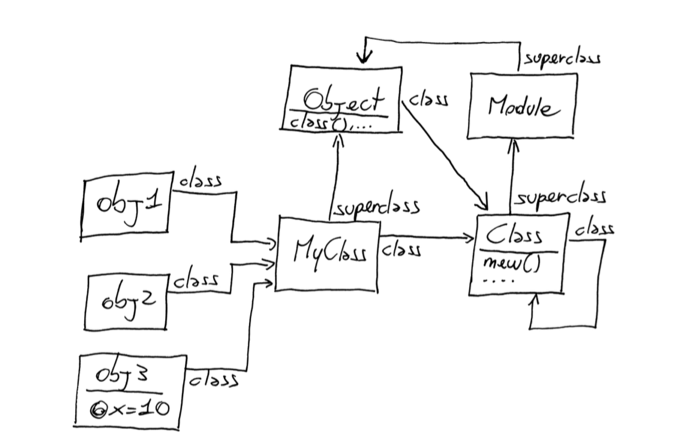 superclass
Object
class(),...
class
Module
obj1
class
superclass
superclass
MyClass
class
Class
new()
....
class
obj2
class
obj3
@x=10
class